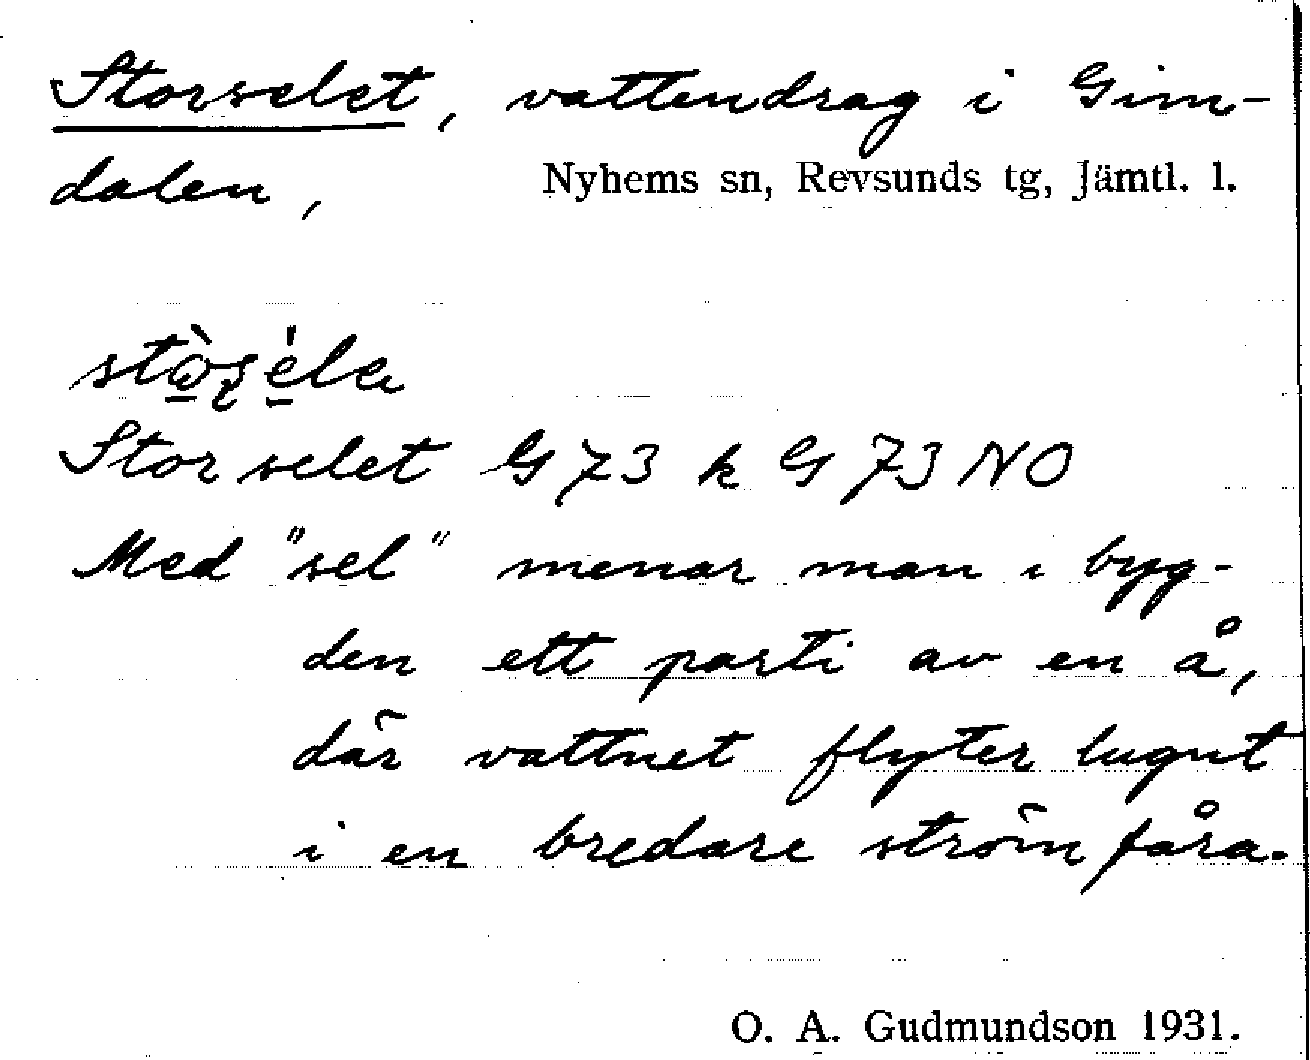 Storselet, vattendrag i Gim-
dalen, Nyhems sn, Revsunds tg, Jämtl. l.
Storselet G 73 k G 73 NO
Med "sel" menar man i byg-
den ett parti av en å,
där vattnet flyter lugnt
i en bredare strömfåra.
O. A. Gudmundson 1931.